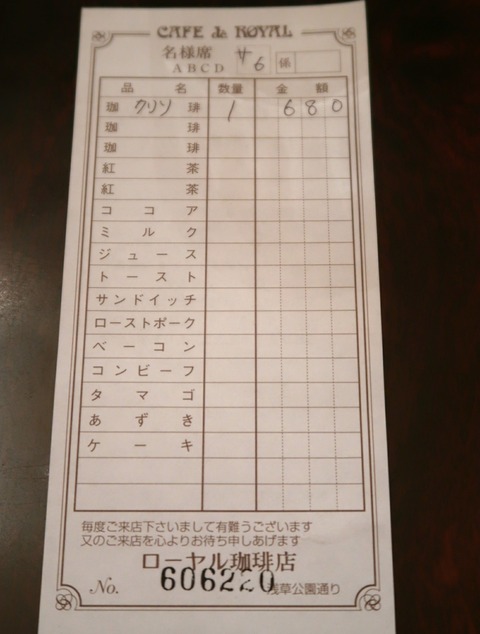 CAFE de ROYAL
名様席
ABCD
6
係
品 名 数量 金 額
珈 クリソ 琲 1 680
珈 琲
珈 琲
紅 茶
紅 茶
コ コ ア
ミ ル ク
ジュース
トースト
サンドイッチ
ローストポーク
ベーコン
コンビーフ
タ マ ゴ
あ ず き
ケ ー キ
毎度ご来店下さいまして有難うございます
又のご来店を心よりお待ち申しあげます
ローヤル珈琲店
No. 606220 浅草公園通り